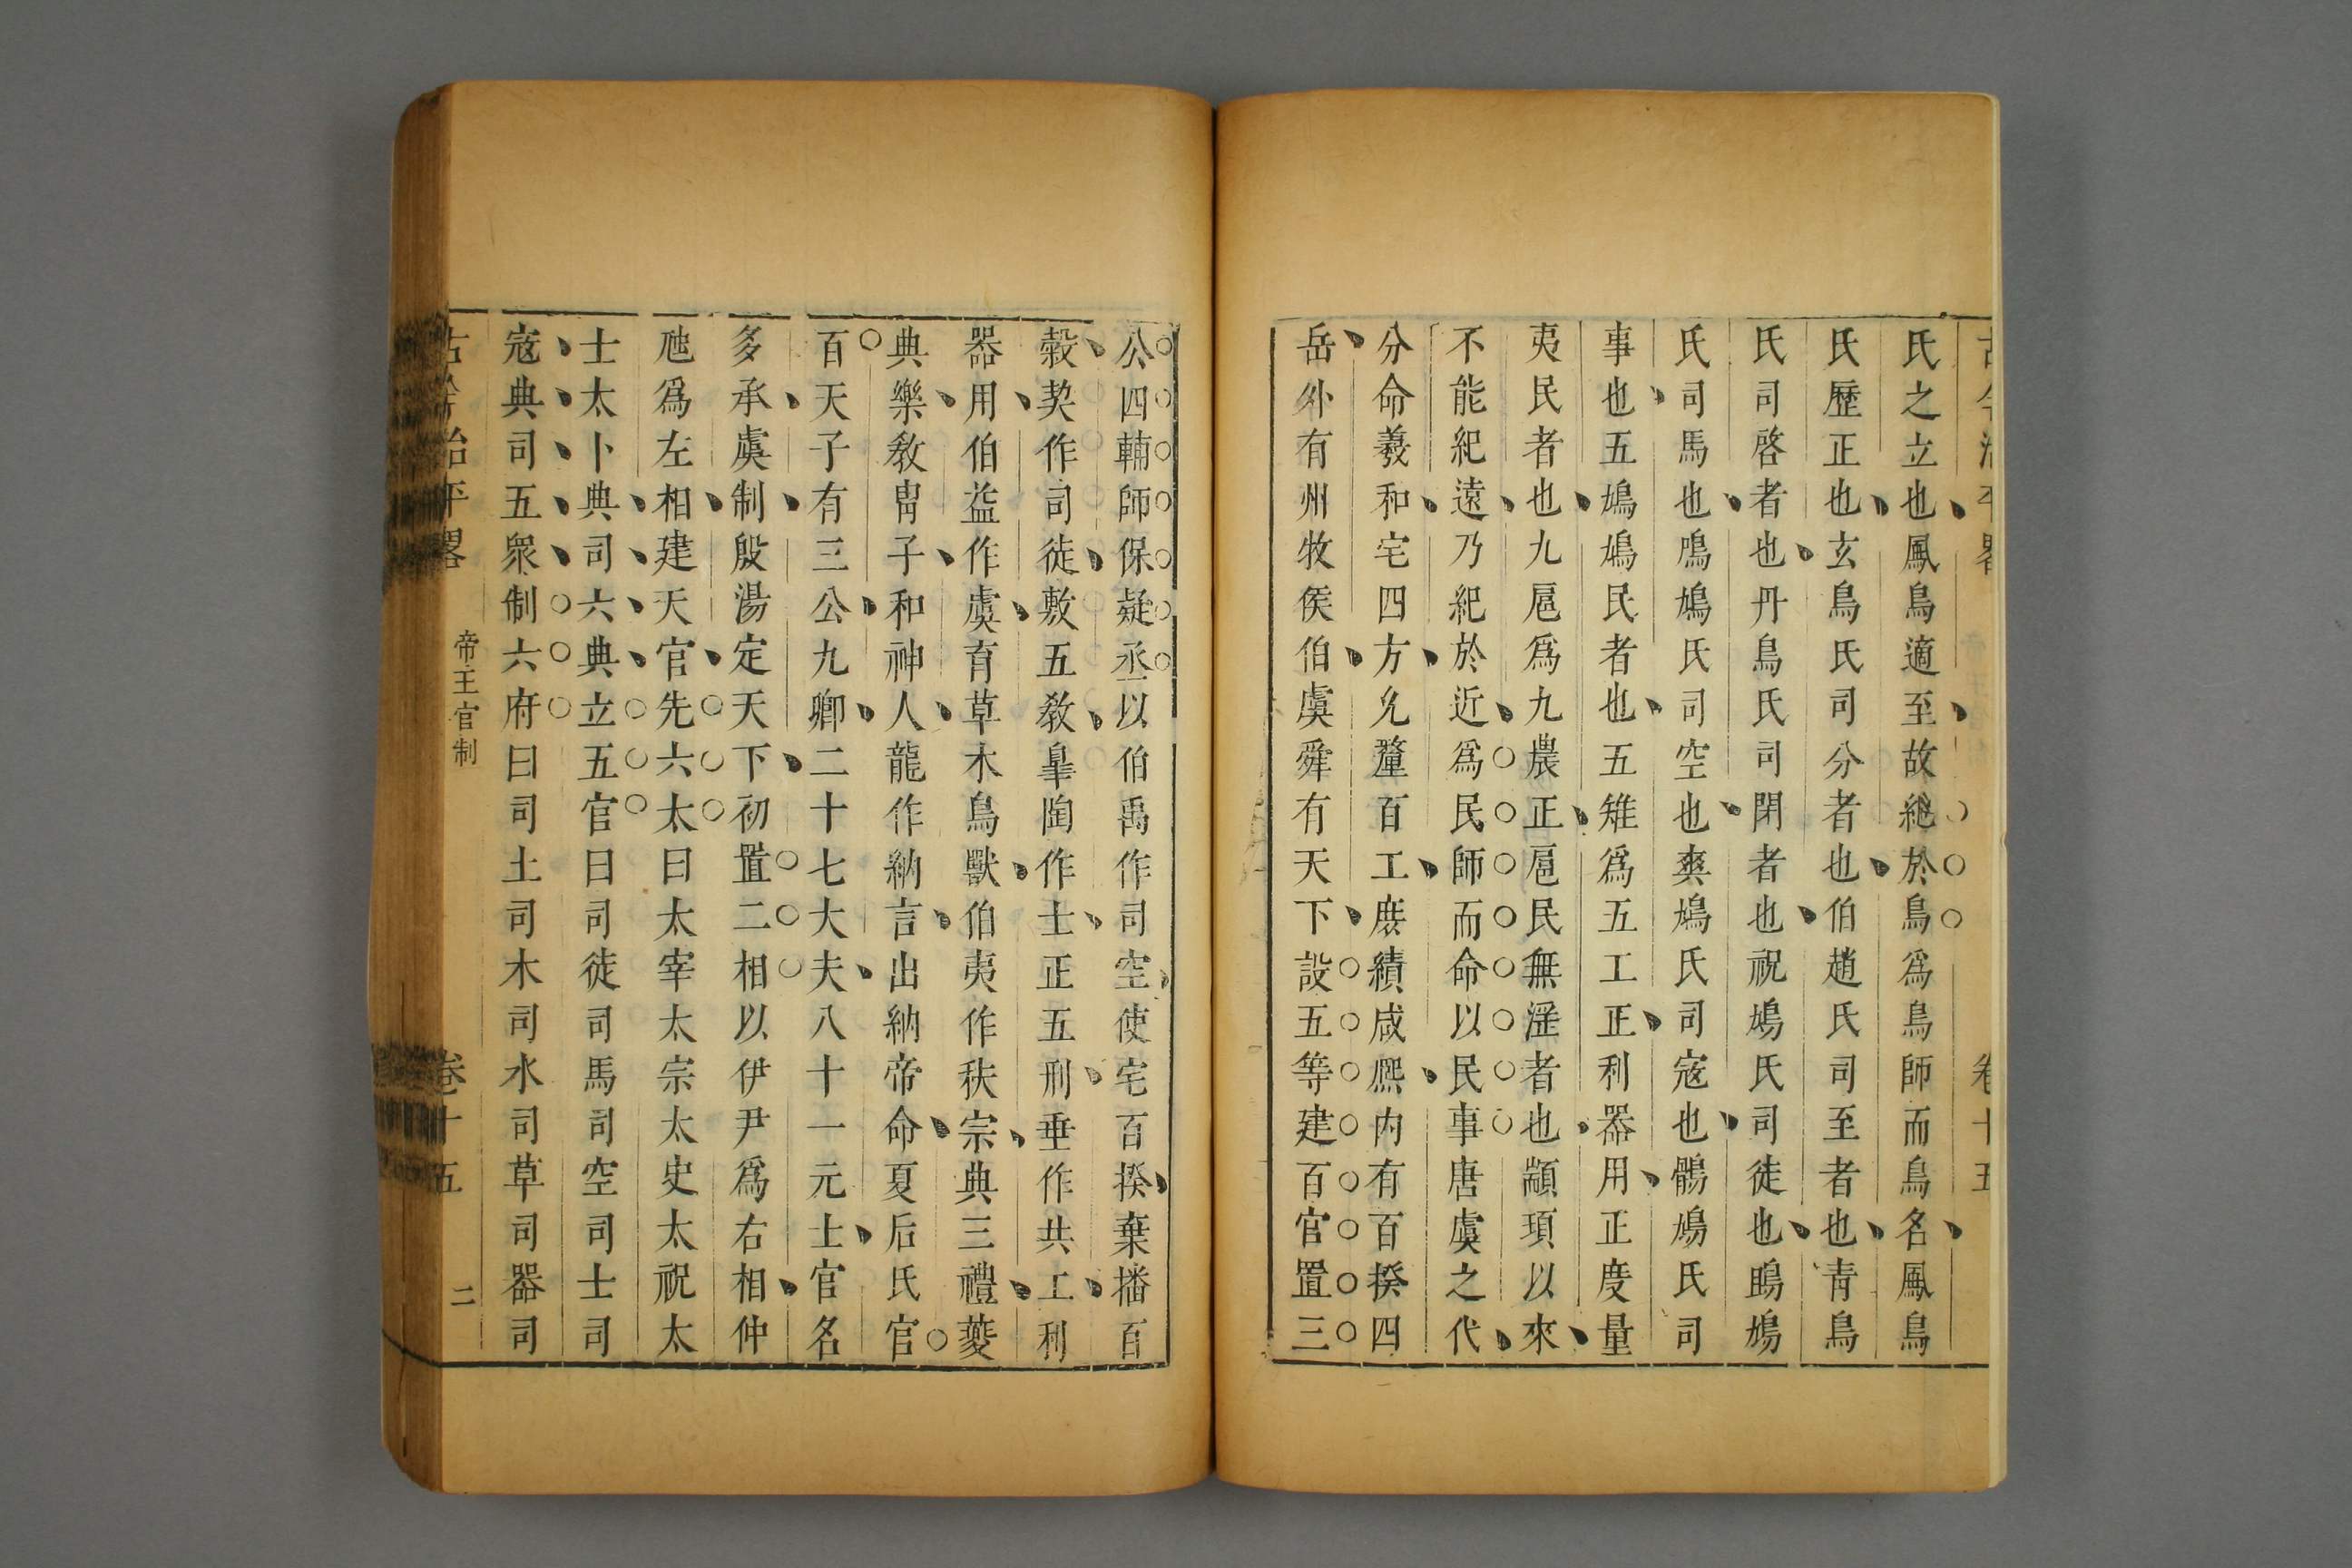 氏之立也鳳鳥適至故紀於鳥爲鳥師而鳥名鳳鳥
氏歷正也玄鳥氏司分者也伯趙氏司至者也青鳥
氏司啓者也丹鳥氏司閉者也祝鳩氏司徒也鴡鳩
氏司馬也鳲鳩氏司空也爽鳩氏司寇也鶻鳩氏司
事也五鳩鳩民者也五雉爲五工正利器用正度量
夷民者也九扈爲九農正扈民無淫者也顓頊以來
不能紀遠乃紀於近爲民師而命以民事唐虞之代
分命羲和宅四方允釐百工庶績咸熈內有百揆四
岳外有州牧侯伯虞舜有天下設五等建百官置三
公四輔師保疑丞以伯禹作司空使宅百揆棄播百
穀契作司徒敷五敎臯陶作士正五刑垂作共工利
器用伯益作虞育草木鳥獸伯夷作秩宗典三禮夔
典樂敎冑子和神人龍作納言出納帝命夏后氏官
百天子有三公九卿二十七大夫八十一元士官名
多承虞制殷湯定天下初置二相以伊尹爲右相仲
虺爲左相建天官先六太曰太宰太宗太史太祝太
士太卜典司六典立五官曰司徒司馬司空司士司
寇典司五衆制六府曰司土司木司水司草司器司
古今治平畧 帝王官制 卷十五 二